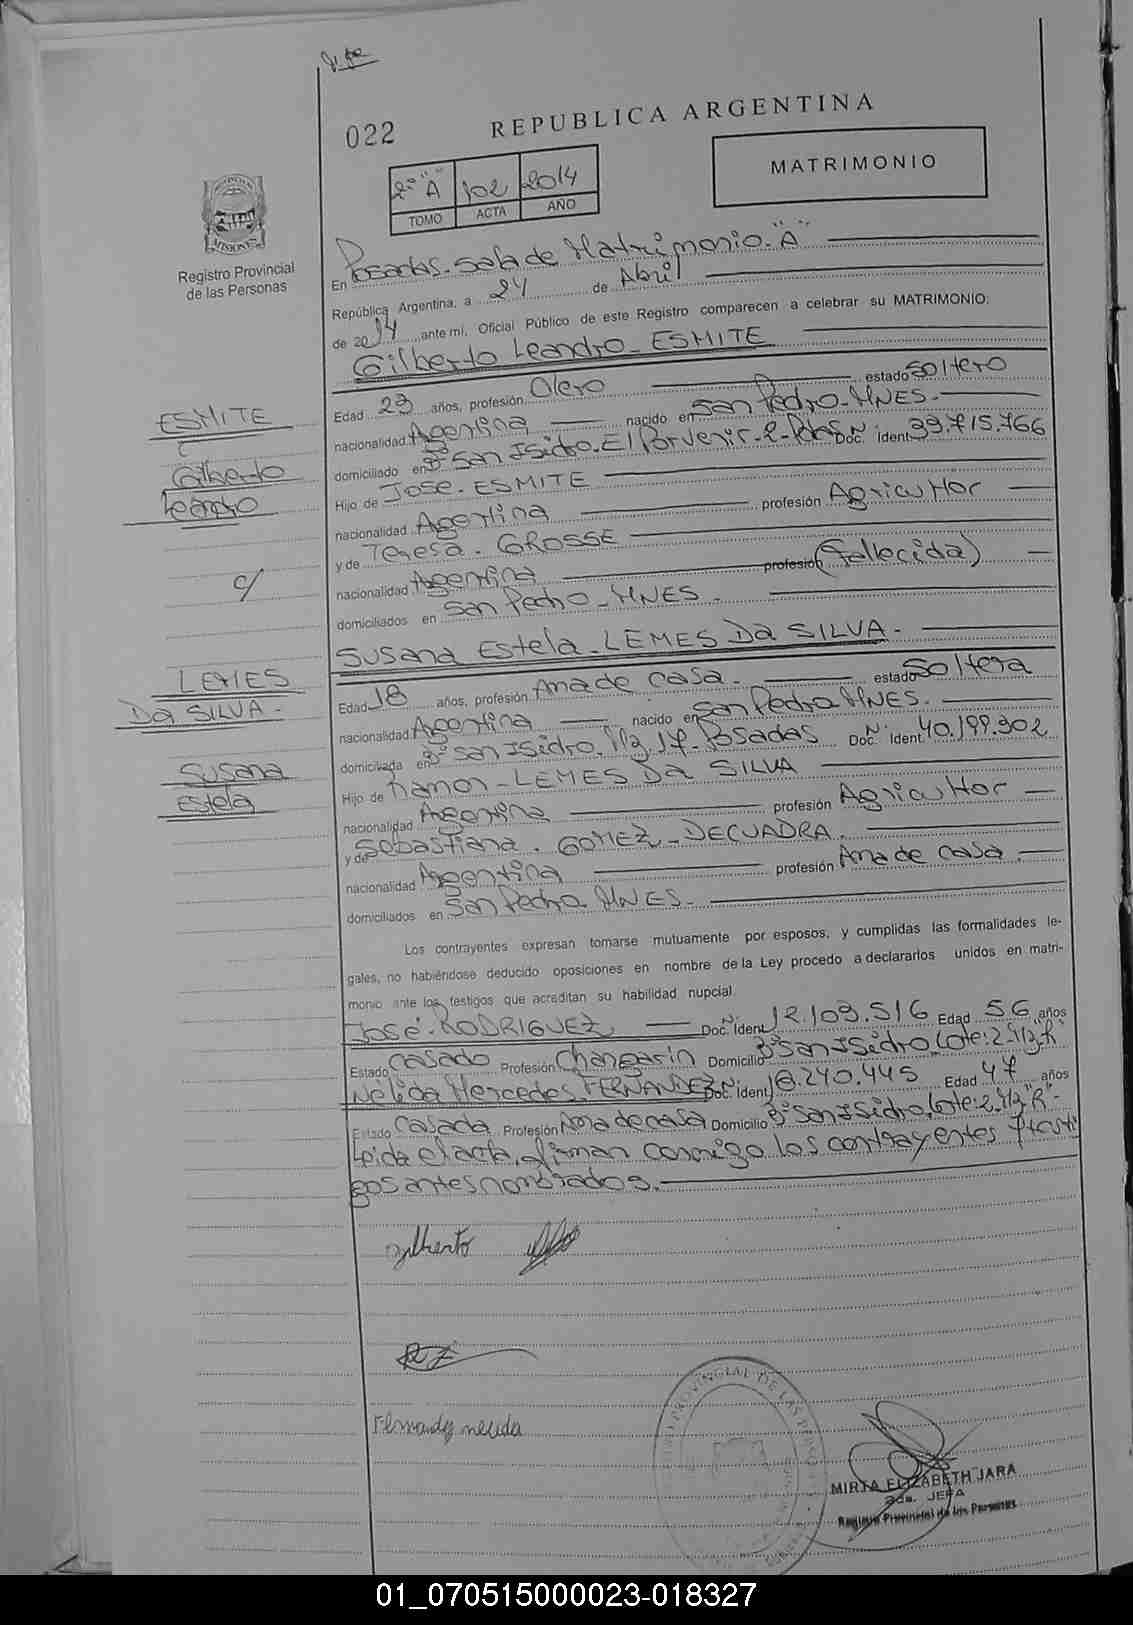 022
REPUBLICA ARGENTINA
MATRIMONIO
2º "A" 102 2014
TOMO ACTA AÑO
MISIONES
Registro Provincial
de las Personas
En Posadas. Sala de Matrimonio. "A"
República Argentina, a 24 de Abril
de 2014 ante mí, Oficial Público de este Registro comparecen a celebrar su MATRIMONIO:
Gilberto Leandro - ESMITE
Edad 23 años, profesión Olero estado Soltero
nacionalidad Argentina nacido en San Pedro - MNES -
domiciliado en Bº San Isidro. El Porvenir - 2 - Pdas Doc. Nº Ident 39.715.766
Hijo de José - ESMITE
nacionalidad Argentina profesión Agricultor
y de Teresa - GROSSE
nacionalidad Argentina profesión (Fallecida)
domiciliados en San Pedro - MNES -
Susana Estela - LEMES Da SILVA -
Edad 18 años, profesión Ama de casa - estado Soltera
nacionalidad Argentina nacido en San Pedro MNES -
domiciliada en Bº San Isidro. Mz. 17 - Posadas Doc. Nº Ident 40.199.302
Hijo de Ramon - LEMES Da SILVA
nacionalidad Argentina profesión Agricultor
y de Sebastiana - GOMEZ - DECUADRA -
nacionalidad Argentina profesión Ama de casa -
domiciliados en San Pedro MNES -
Los contrayentes expresan tomarse mutuamente por esposos, y cumplidas las formalidades le-
gales, no habiéndose deducido oposiciones en nombre de la Ley procedo a declararlos unidos en matri-
monio ante los testigos que acreditan su habilidad nupcial
José - RODRIGUEZ Doc. Nº Ident 12.109.516 Edad 56 años
Estado Casado Profesión Changarín Domicilio Bº San Isidro, Lote: 2 - Mz - R
Nélida Mercedes FERNANDEZ Doc. Nº Ident 18.240.445 Edad 47 años
Estado Casada Profesión Ama de casa Domicilio Bº San Isidro, Lote: 2, Mz "R" -
Leida el acta, firman conmigo los contrayentes y testi
gos antes nombrados -
ESMITE
Gilberto
Leandro
c/
LEMES
Da SILVA -
Susana
Estela
Gilberto
Fernandez nelida
MIRTA ELIZABETH JARA
2da. JEFA
Registro Provincial de las Personas
01_070515000023-018327